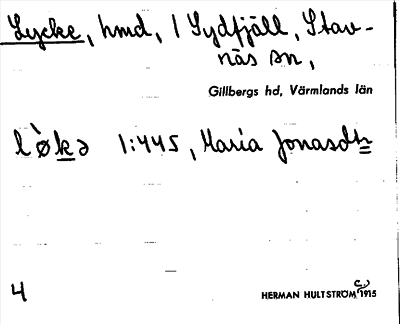 Lycke, hmd, 1 Sydfjäll, Stav-
näs sn,
Gillbergs hd, Värmlands län
lø̀kə 1:445, Maria Jonasdtr
4
HERMAN HULTSTRÖM, 1915